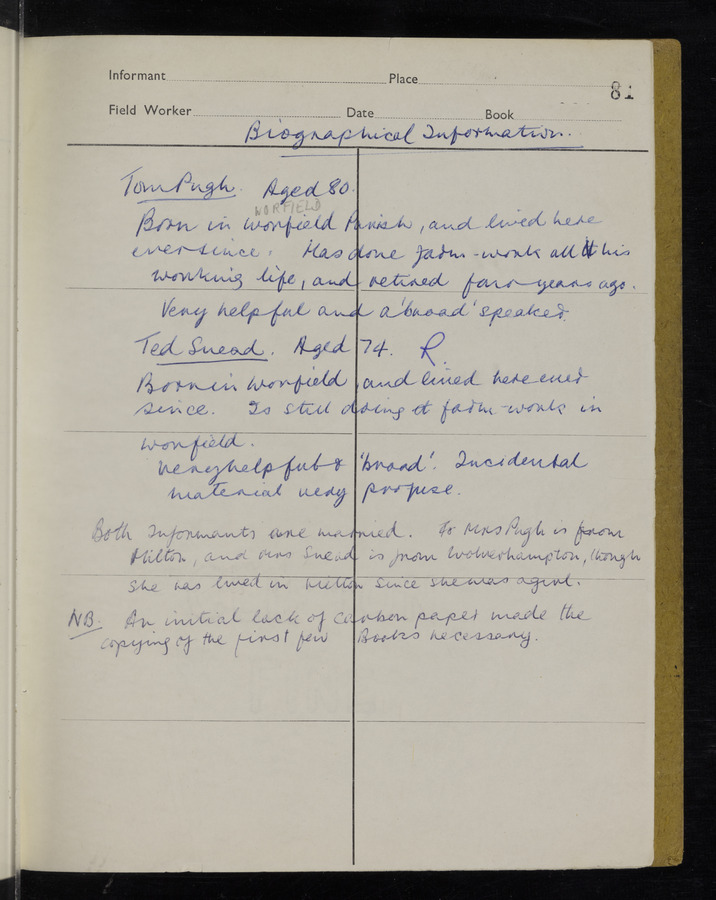 Informant Place
81
Field Worker Date Book
Biographical Information.
Tom Pugh. Aged 80.
WORFIELD
Born in Worfield Parish, and lived here
ever since. Has done farm-work all his
working life, and retired four years ago.
Very helpful and a 'broad' speaker.
Ted Snead. Aged 74. R.
Born in Worfield, and lived here ever
since. Is still doing farm-work in
Worfield.
Very helpful & 'broad'. Incidental
material very profuse.
Both Informants are married. Mrs Pugh is from
Hilton, and Mrs Snead is from Wolverhampton, though
she has lived in Hilton since she was a girl.
NB. An initial lack of carbon paper made the
copying of the first few Books necessary.